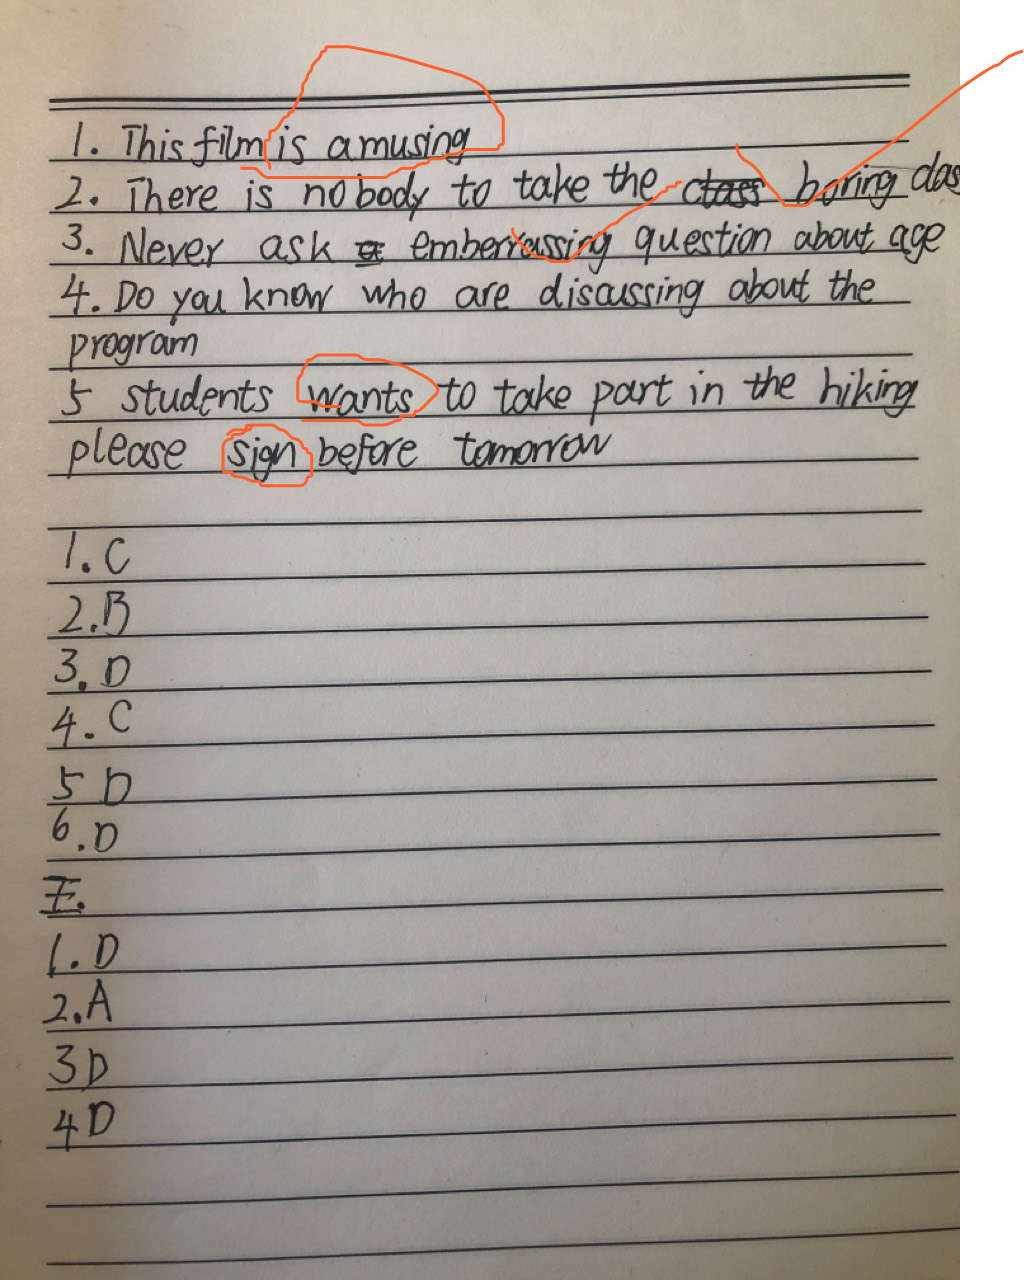 1. This film is amusing
2. There is nobody to take the boring clas
3. Never ask emberrassing question about age
4. Do you know who are discussing about the
program
5 students wants to take part in the hiking
please sign before tomorrow
1. C
2. B
3. D
4. C
5 D
6. D
1. D
2. A
3 D
4 D